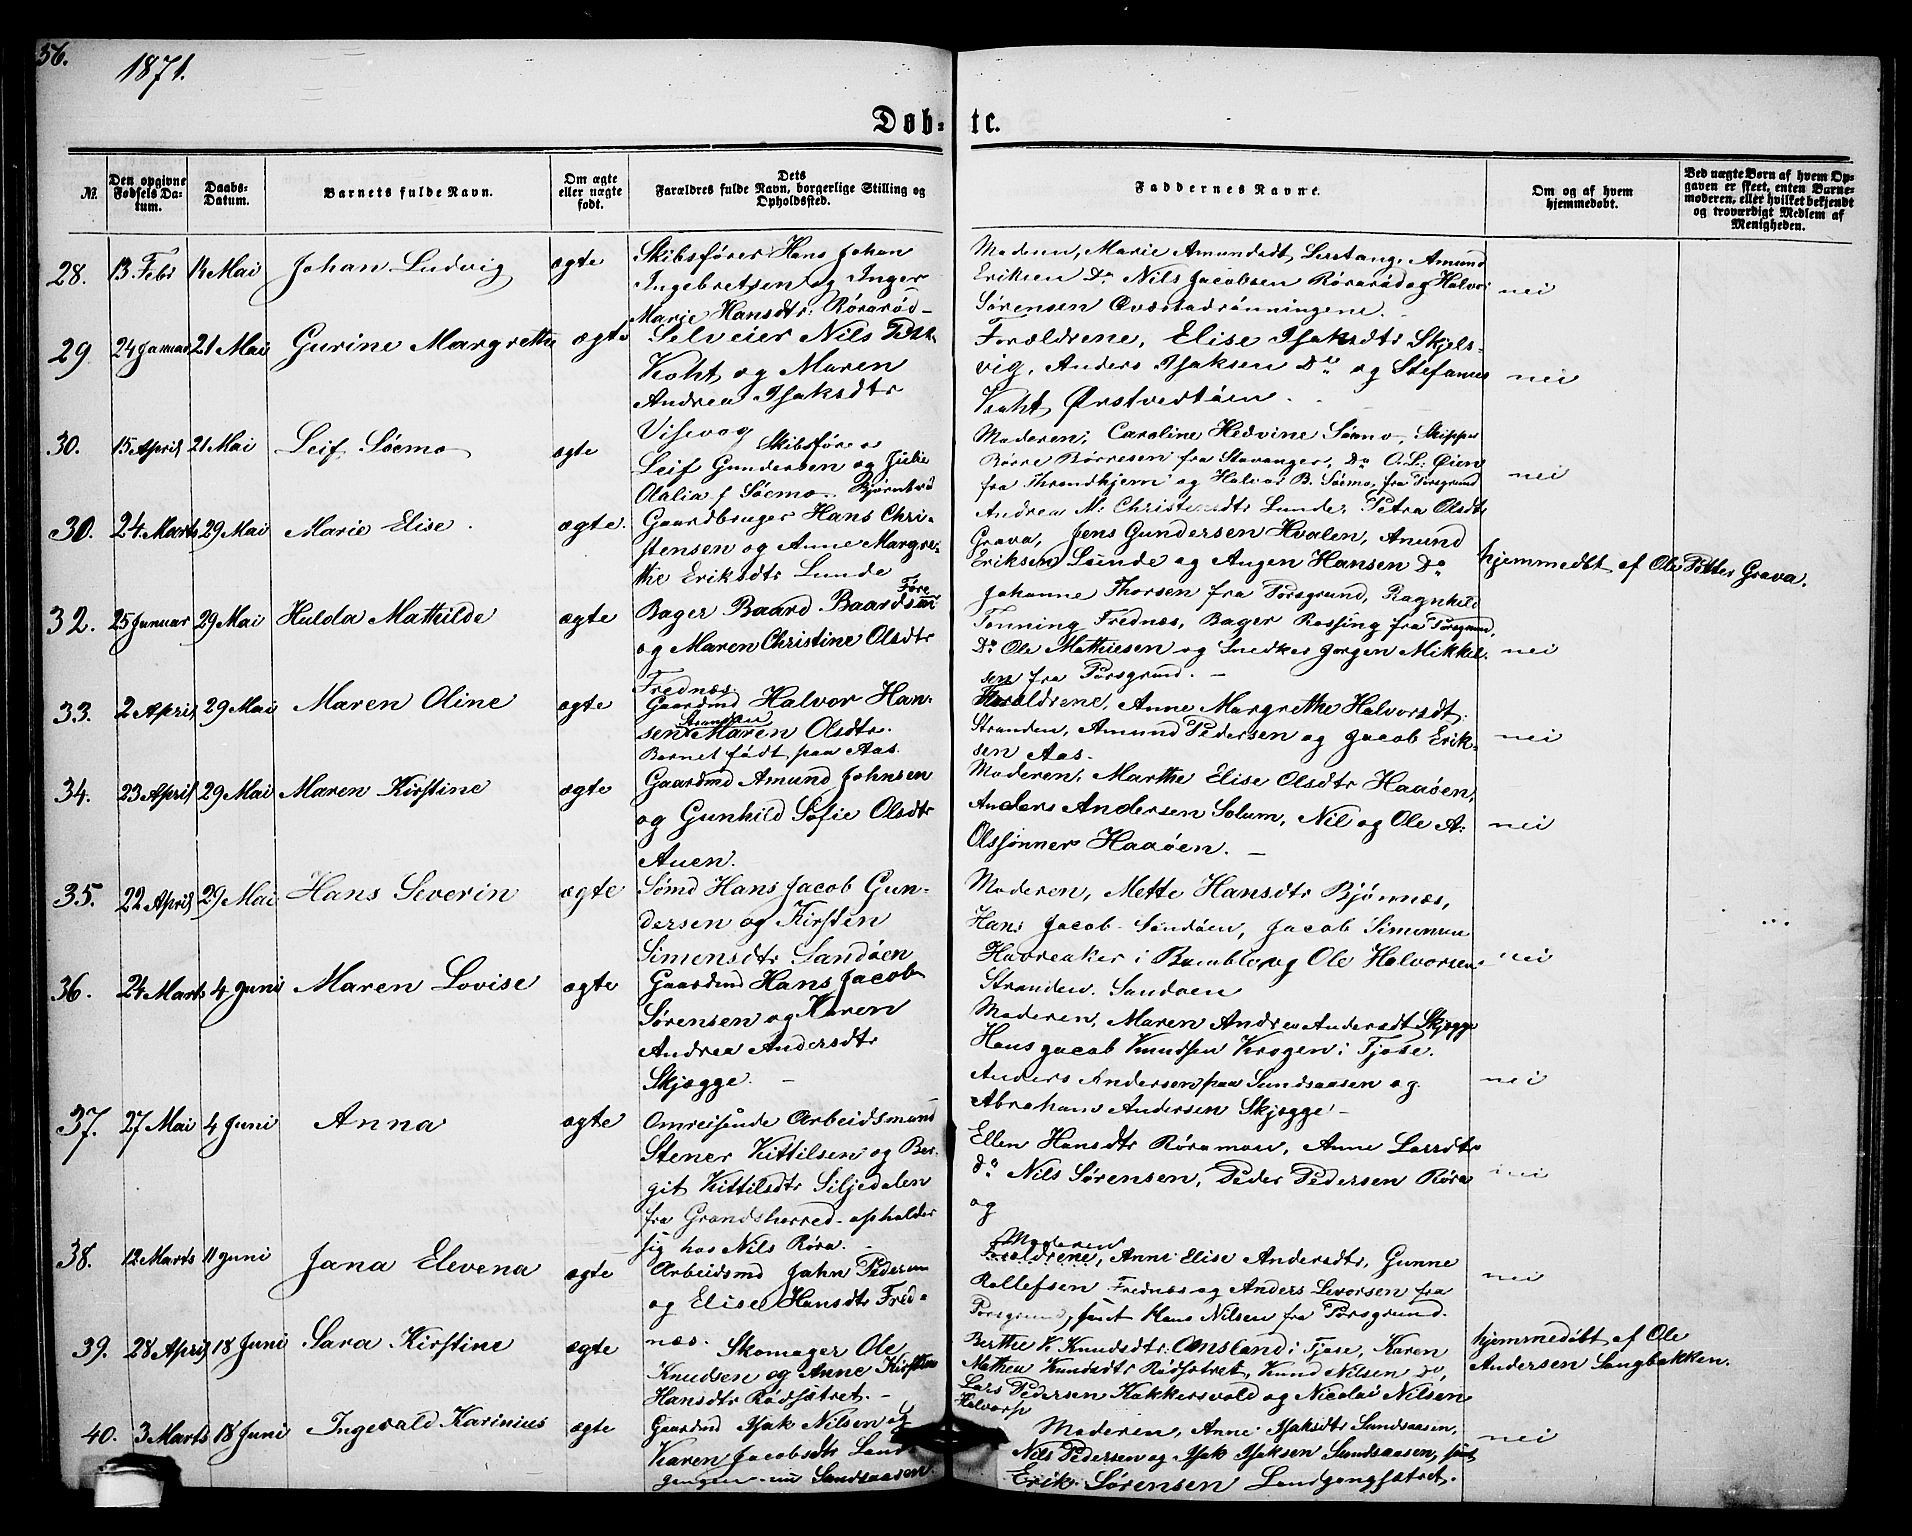 56.
1871.
Døb-te.
№
Den opgivne Fødsels Datum.
Daabs-Datum.
Barnets fulde Navn.
Om ægte eller uægte født.
Dets Forældres fulde Navn, borgerlige Stilling og Opholdssted.
Faddernes Navne.
Om og af hvem hjemmedøbt.
Ved uægte Børn af hvem Opgaven er skeet, enten Barnemoderen, eller hvilket bekjendt og troværdigt Medlem af Menigheden.
28. 13 Febr 14 Mai Johan Ludvig ægte
Skibsfører Hans Johan
Ingebretsen og Inger
Marie Hansdtr: Rørarød
Moderen, Marie Amundsdt Amund
Eriksen Do Nils Jacobsen Rørarød og Halvor
Sørensen Qvæstadrønningene.
nei
29 24 Januar 21 Mai Gurine Margrethe ægte
Selveier Nils
Koht og Maren
Andrea Isaksdtr
Forældrene, Elise Isaksdtr Skjels-
vig, Anders Isaksen Do og Stefanus
Koht Ørstvedtøen.
nei
30. 15 April 21 Mai Leif Söemo ægte
Skibsfører
Leif Gundersen og Julie
Olalia f Söemo
Moderen, Caroline Hedvine Söemo, Skipper
Börre Börresen fra Stavanger, Do O. L. Øien
fra Throndhjem og Halvor B. Söemo, fra Porsgrund
nei
30. 24 Marts 29 Mai Marie Elise. ægte.
Gaardbruger Hans Chri-
stensen og Anne Margre-
the Eriksdtr Lunde
Andrea M. Christensdtr Lunde, Petra Olsdtr
Grava, Jens Gundersen Hvalen, Amund
Eriksen Lunde og Augen Hansen Do
hjemmedøbt af Ole Petter Grava.
32. 25 Januar 29 Mai Hulda Mathilde ægte
Bager Baard Baardsen
og Maren Christine Olsdtr
Frednæs
Johanne Thorsen fra Porsgrund, Ragnhild
Tönning Frednæs, Bager Rossing fra Porsgrund,
Do Ole Mathiesen og Snedker Jørgen Mikkel-
sen fra Porsgrund.
nei
33. 2 April 29 Mai Maren Oline ægte
Gaardmd Halvor Han-
sen Maren Olsdtr.
Barnet født paa Aas.
Forældrene, Anne Margrethe Halvorsdt:
Stranden, Amund Pedersen og Jacob Erik-
sen Aas.
nei
34. 23 April 29 Mai Maren Kirstine ægte
Gaardmd Amund Johnsen
og Gunhild Sofie Olsdtr
Auen.
Moderen, Marthe Elise Olsdtr Haaøen,
Anders Andersen Solum, Nil og Ole A:
Olssønner Haaøen.
nei
35. 22 April 29 Mai Hans Severin ægte
Sømd Hans Jacob Gun-
dersen og Kirsten
Simensdtr Sandøen
Moderen, Mette Hansdtr Bjønnæs,
Hans Jacob Sandøen, Jacob Simensen
Havreaker i Bamble, og Ole Halvorsen
Stranden. Sandøen
nei
36. 24 Marts 4 Juni Maren Lovise ægte
Gaardmd Hans Jacob
Sørensen og Karen
Andrea Andersdtr
Skjøgge.
Moderen, Maren Andrea Andersdt Skjøgge
Hans Jacob Knudsen Krogen i Tjose.
Anders Andersen paa Sundsaasen og
Abraham Andersen Skjøgge
nei
37. 27 Mai 4 Juni Anna ægte
Omreisende Arbeidsmand
Stener Kittilsen og Ber-
git Kittilsdtr Siljedalen
fra Grandsherred opholder
sig hos Nils Røra.
Ellen Hansdtr Röramoen, Anne Larsdtr
do Nils Sørensen, Peder Pedersen Röra
og
nei
38. 12 Marts 11 Juni Jana Elevena ægte
Arbeidsmd Jahn Pedersen
og Elise Hansdtr Fred-
næs.
Moderen
Forældrene, Anne Elise Andersdtr, Gunne
Rollefsen Frednæs og Anders Levorsen fra
Porsgrund, samt Hans Nilsen fra Porsgrund.
nei
39. 28 April 18 Juni Sara Kirstine ægte
Skomager Ole
Knudsen og Anne Kirstine
Hansdtr Rødsætret.
Berthe K Knudsdtr: Omsland i Tjose, Karen
Mathea Knudsdtr Rødsætret, Knud Nilsen do,
Lars Pedersen Kokkersvold og Nicolai Nilsen
hjemmedøbt af Ole
Andersen Langbakken.
40. 3 Marts 18 Juni Ingevald Karinius ægte
Gaardmd Isak Nilsen og
Karen Jacobsdtr Land-
gangen nu Sundsaasen.
Moderen, Anne Isaksdtr Sundsaasen,
Nils Pedersen og Isak Isaksen Sundsaasen, samt
Erik Sørensen Landgangsætret.
nei